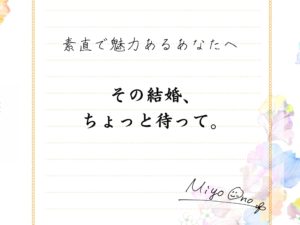 素直で魅力あるあなたへ
その結婚、
ちょっと待って。
Miyo Ono